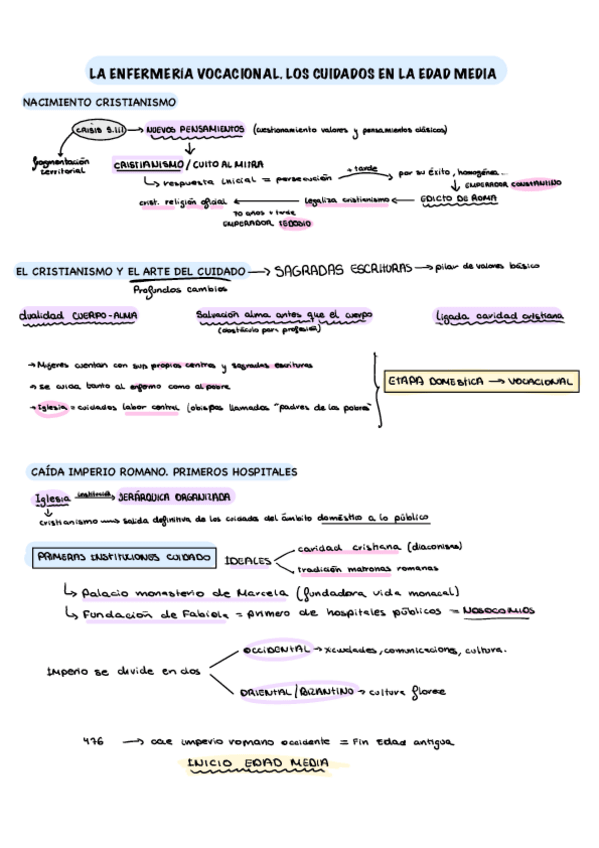 LA ENFERMERÍA VOCACIONAL. LOS CUIDADOS EN LA EDAD MEDIA
NACIMIENTO CRISTIANISMO
CRISIS S.III → NUEVOS PENSAMIENTOS (cuestionamiento valores y pensamientos clásicos)
fragmentación territorial
CRISTIANISMO / CULTO AL MITRA
↳ respuesta inicial = persecución → + tarde → por su éxito, homogénea...
↓ EMPERADOR CONSTANTINO
crist. religión oficial ← legaliza cristianismo ← EDICTO DE ROMA
70 años + tarde
EMPERADOR TEODOSIO
EL CRISTIANISMO Y EL ARTE DEL CUIDADO → SAGRADAS ESCRITURAS → pilar de valores básico
Profundos cambios
dualidad CUERPO-ALMA
Salvación alma antes que el cuerpo
(obstáculo para profesión)
ligada caridad cristiana
→ Mujeres cuentan con sus propios centros y sagradas escrituras
→ se cuida tanto al enfermo como al pobre
→ Iglesia = cuidados labor central (obispos llamados "padres de los pobres"
ETAPA DOMESTICA → VOCACIONAL
CAÍDA IMPERIO ROMANO. PRIMEROS HOSPITALES
Iglesia → JERÁRQUICA ORGANIZADA
↓
cristianismo → salida definitiva de los cuidado del ámbito doméstico a lo público
PRIMERAS INSTITUCIONES CUIDADO
IDEALES
caridad cristiana (diaconisas)
tradición matronas romanas
↳ Palacio monasterio de Marcela (fundadora vida monacal)
↳ Fundación de Fabiola = primero de hospitales públicos = NOSOCOMIOS
Imperio se divide en dos
OCCIDENTAL → xciudades, comunicaciones, cultura.
ORIENTAL / BIZANTINO → cultura florece
476 → cae imperio romano occidente = Fin Edad antigua
INICIO EDAD MEDIA